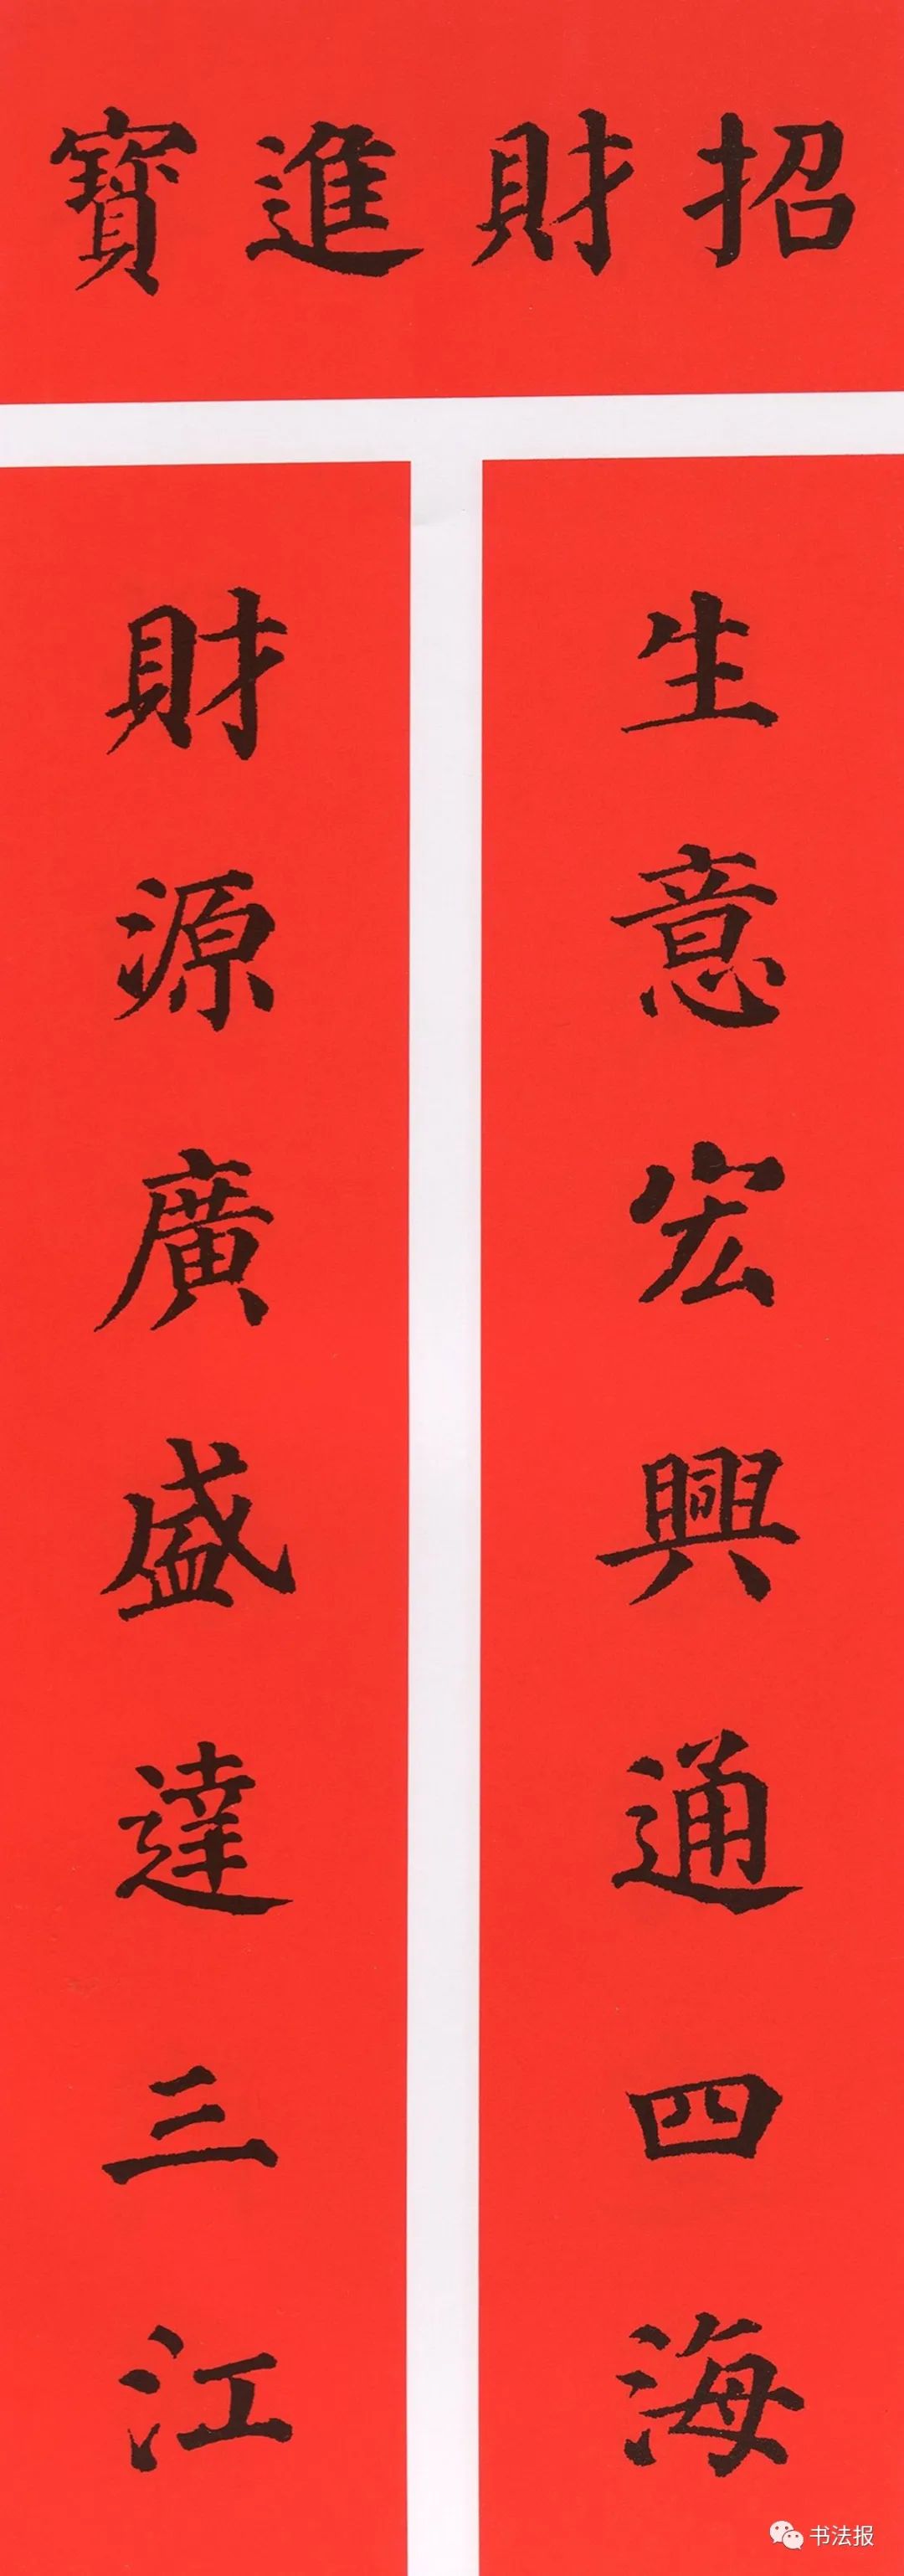 招財進寶
生意宏興通四海
財源廣盛達三江
书法报